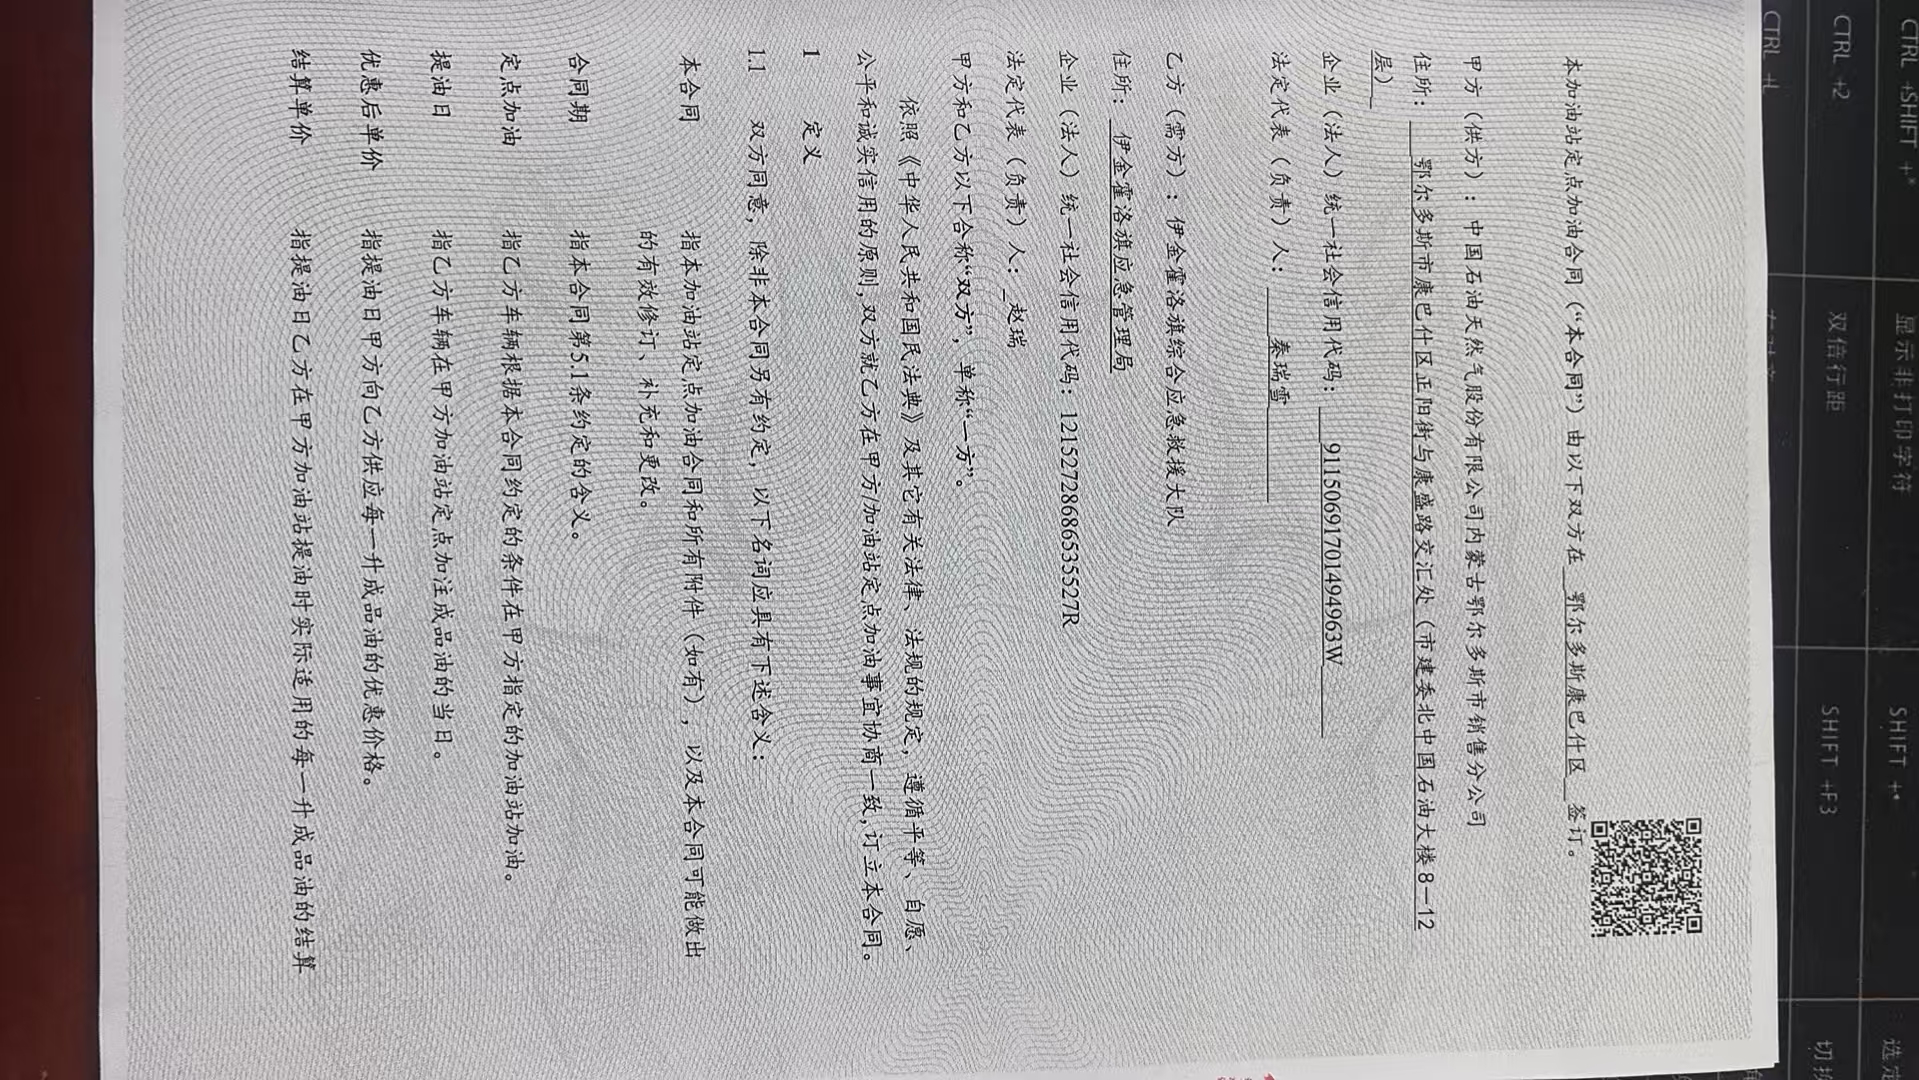 本加油站定点加油合同（“本合同”）由以下双方在 鄂尔多斯康巴什区 签订。
甲方（供方）：中国石油天然气股份有限公司内蒙古鄂尔多斯市销售分公司
住所： 鄂尔多斯市康巴什区正阳街与康盛路交汇处（市建委北中国石油大楼8—12
层）
企业（法人）统一社会信用代码： 91150691701494963W
法定代表（负责）人： 秦瑞雪
乙方（需方）：伊金霍洛旗综合应急救援大队
住所： 伊金霍洛旗应急管理局
企业（法人）统一社会信用代码：12152728686535527R
法定代表（负责）人：赵瑞
甲方和乙方以下合称“双方”，单称“一方”。
依照《中华人民共和国民法典》及其它有关法律、法规的规定，遵循平等、自愿、
公平和诚实信用的原则,双方就乙方在甲方/加油站定点加油事宜协商一致,订立本合同。
1 定义
1.1 双方同意，除非本合同另有约定，以下名词应具有下述含义：
本合同 指本加油站定点加油合同和所有附件（如有），以及本合同可能做出
的有效修订、补充和更改。
合同期 指本合同第5.1条约定的含义。
定点加油 指乙方车辆根据本合同约定的条件在甲方指定的加油站加油。
提油日 指乙方车辆在甲方加油站定点加注成品油的当日。
优惠后单价 指提油日甲方向乙方供应每一升成品油的优惠价格。
结算单价 指提油日乙方在甲方加油站提油时实际适用的每一升成品油的结算
CTRL +SHIFT +*
显示非打印字符
SHIFT +*
CTRL +2
双倍行距
SHIFT +F3
CTRL +L